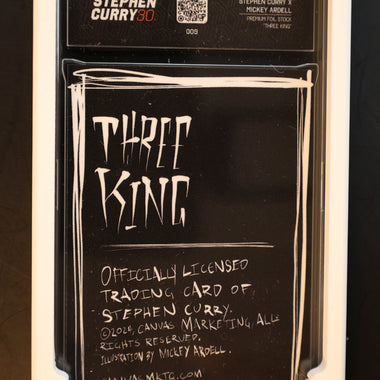 STEPHEN
CURRY30.
009
STEPHEN CURRY X
MICKEY ARDELL
PREMIUM FOIL STOCK
"THREE KING"
THREE
KING
OFFICIALLY LICENSED
TRADING CARD OF
STEPHEN CURRY.
©2026, CANVAS MARKETING, ALL
RIGHTS RESERVED.
ILLUSTRATION BY MICKEY ARDELL.